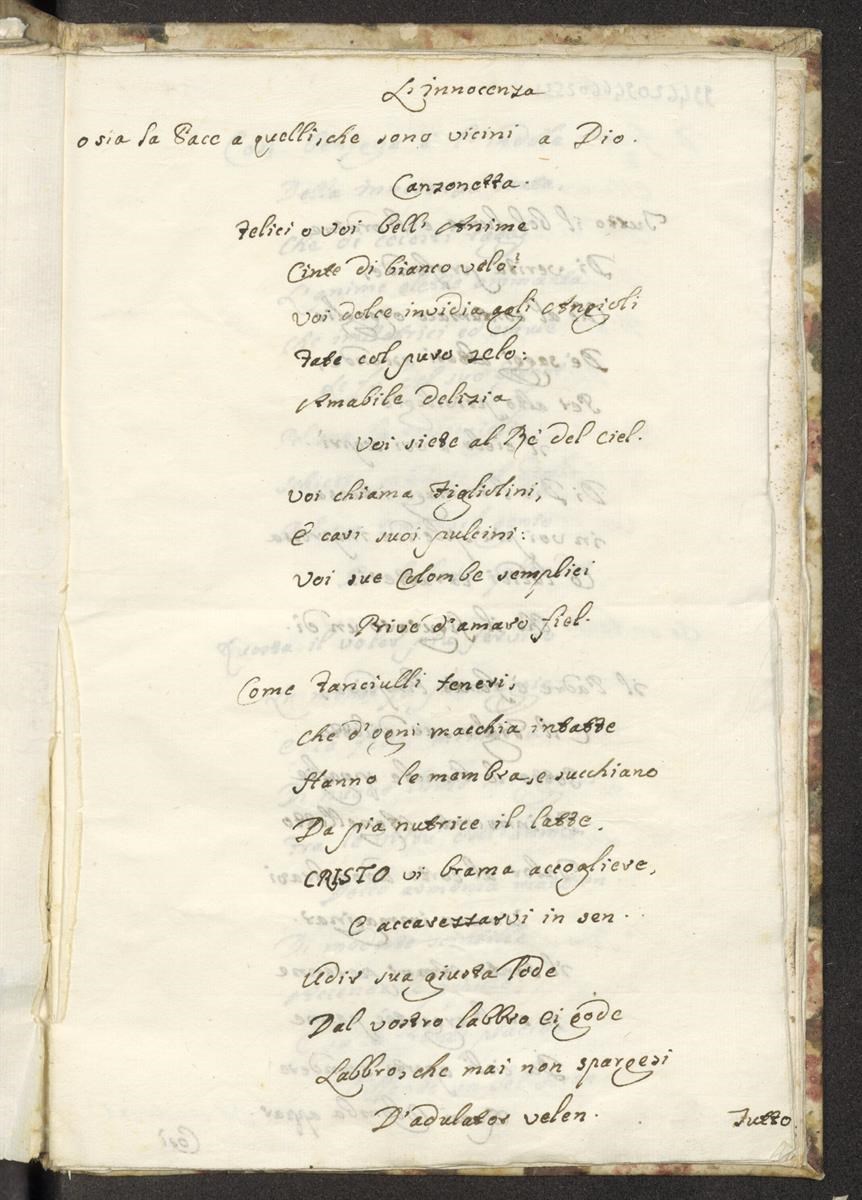 L'innocenza
o sia la Pace a quelli, che sono vicini a Dio.
Canzonetta.
Felici o voi bell' Anime
Cinte di bianco velo:
Voi dolce invidia agli Angioli
Fate col puro zelo:
Amabile delizia
Voi siete al Rè del Ciel.
Voi chiama Figliolini,
E cari suoi pulcini:
Voi sue Colombe semplici
Prive d'amaro fiel.
Come Fanciulli teneri,
Che d'ogni macchia intatte
Hanno le membra, e succhiano
Da pia nutrice il latte,
CRISTO vi brama accogliere,
E accarezzarvi in sen.
Udir sua giusta lode
Dal vostro labbro ei gode
Labbro, che mai non spargesi
D'adulator velen.
Tutto